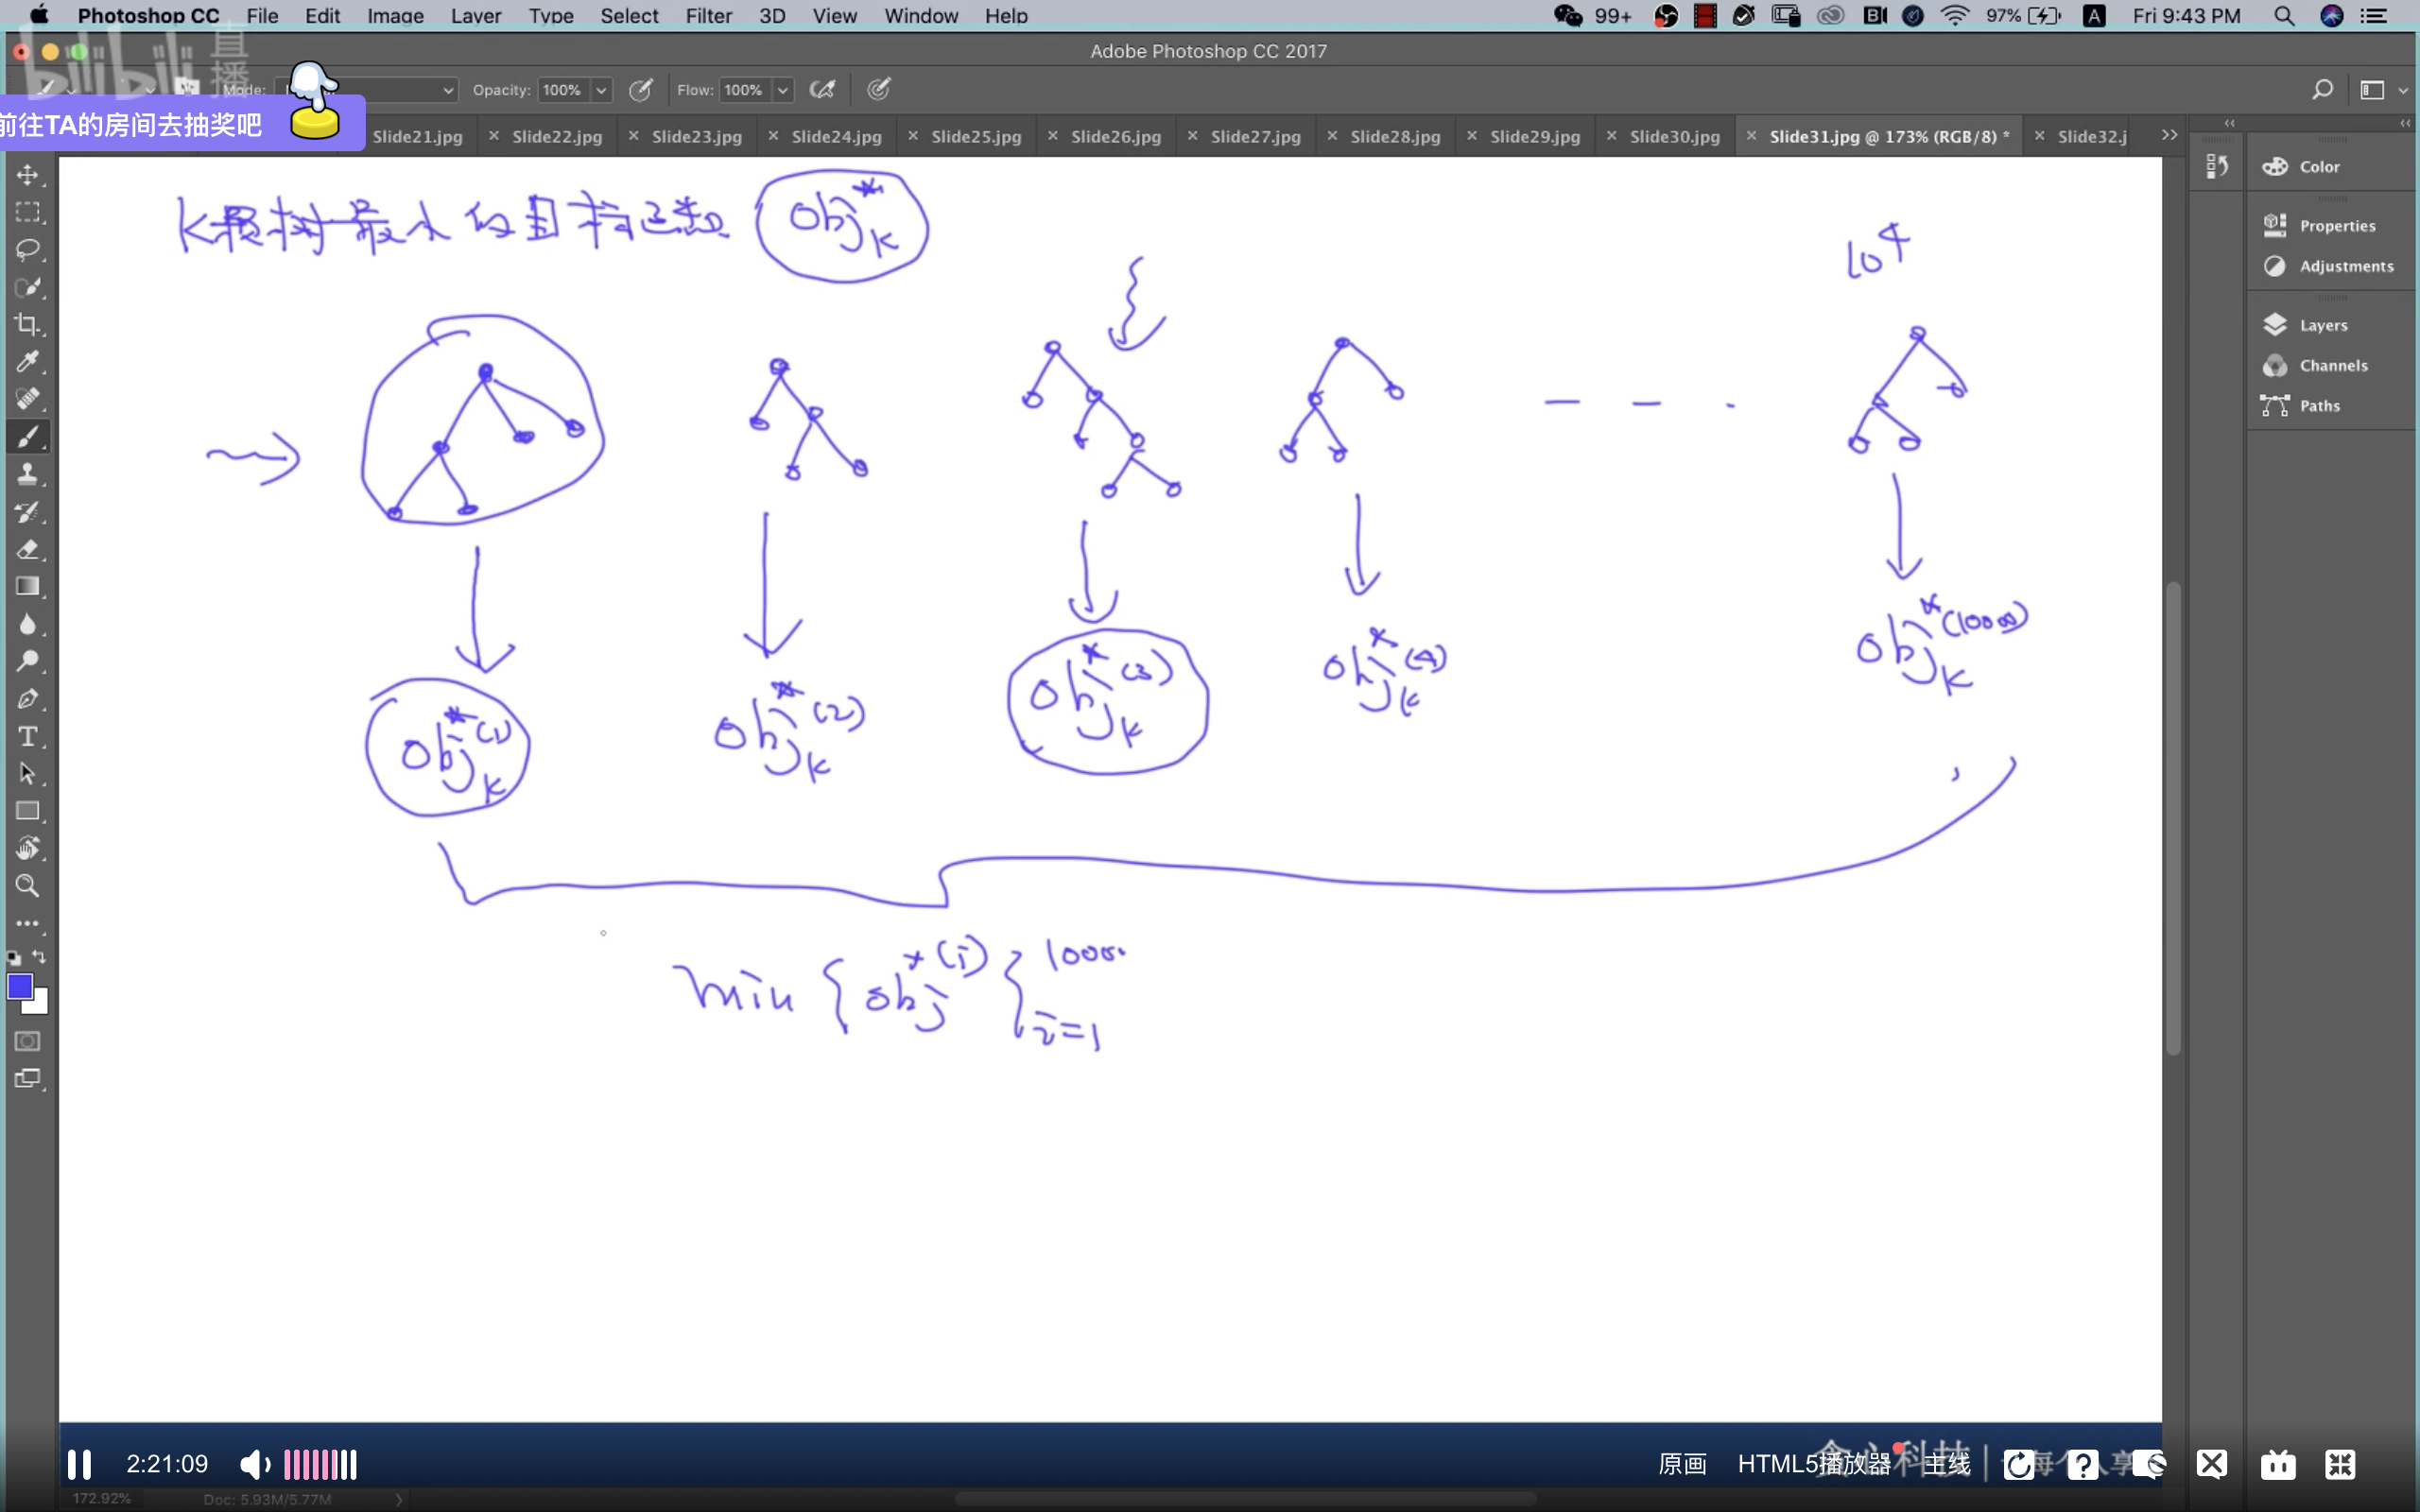 Photoshop CC File Edit Image Layer Type Select Filter 3D View Window Help 99+ 97% A Fri 9:43 PM
bilibili 直播
Adobe Photoshop CC 2017
Mode: Opacity: 100% Flow: 100%
前往TA的房间去抽奖吧
Slide21.jpg × Slide22.jpg × Slide23.jpg × Slide24.jpg × Slide25.jpg × Slide26.jpg × Slide27.jpg × Slide28.jpg × Slide29.jpg × Slide30.jpg × Slide31.jpg @ 173% (RGB/8) * × Slide32.j >>
Color
Properties
Adjustments
Layers
Channels
Paths
K棵树最小的目标函数 obj*k
10^4
obj*(1)k obj*(2)k obj*(3)k obj*(4)k obj*(10000)k
min { obj*(i) } 10000 i=1
2:21:09 原画 HTML5播放器 主线
贪心科技 | 每个人享
172.92% Doc: 5.93M/5.77M